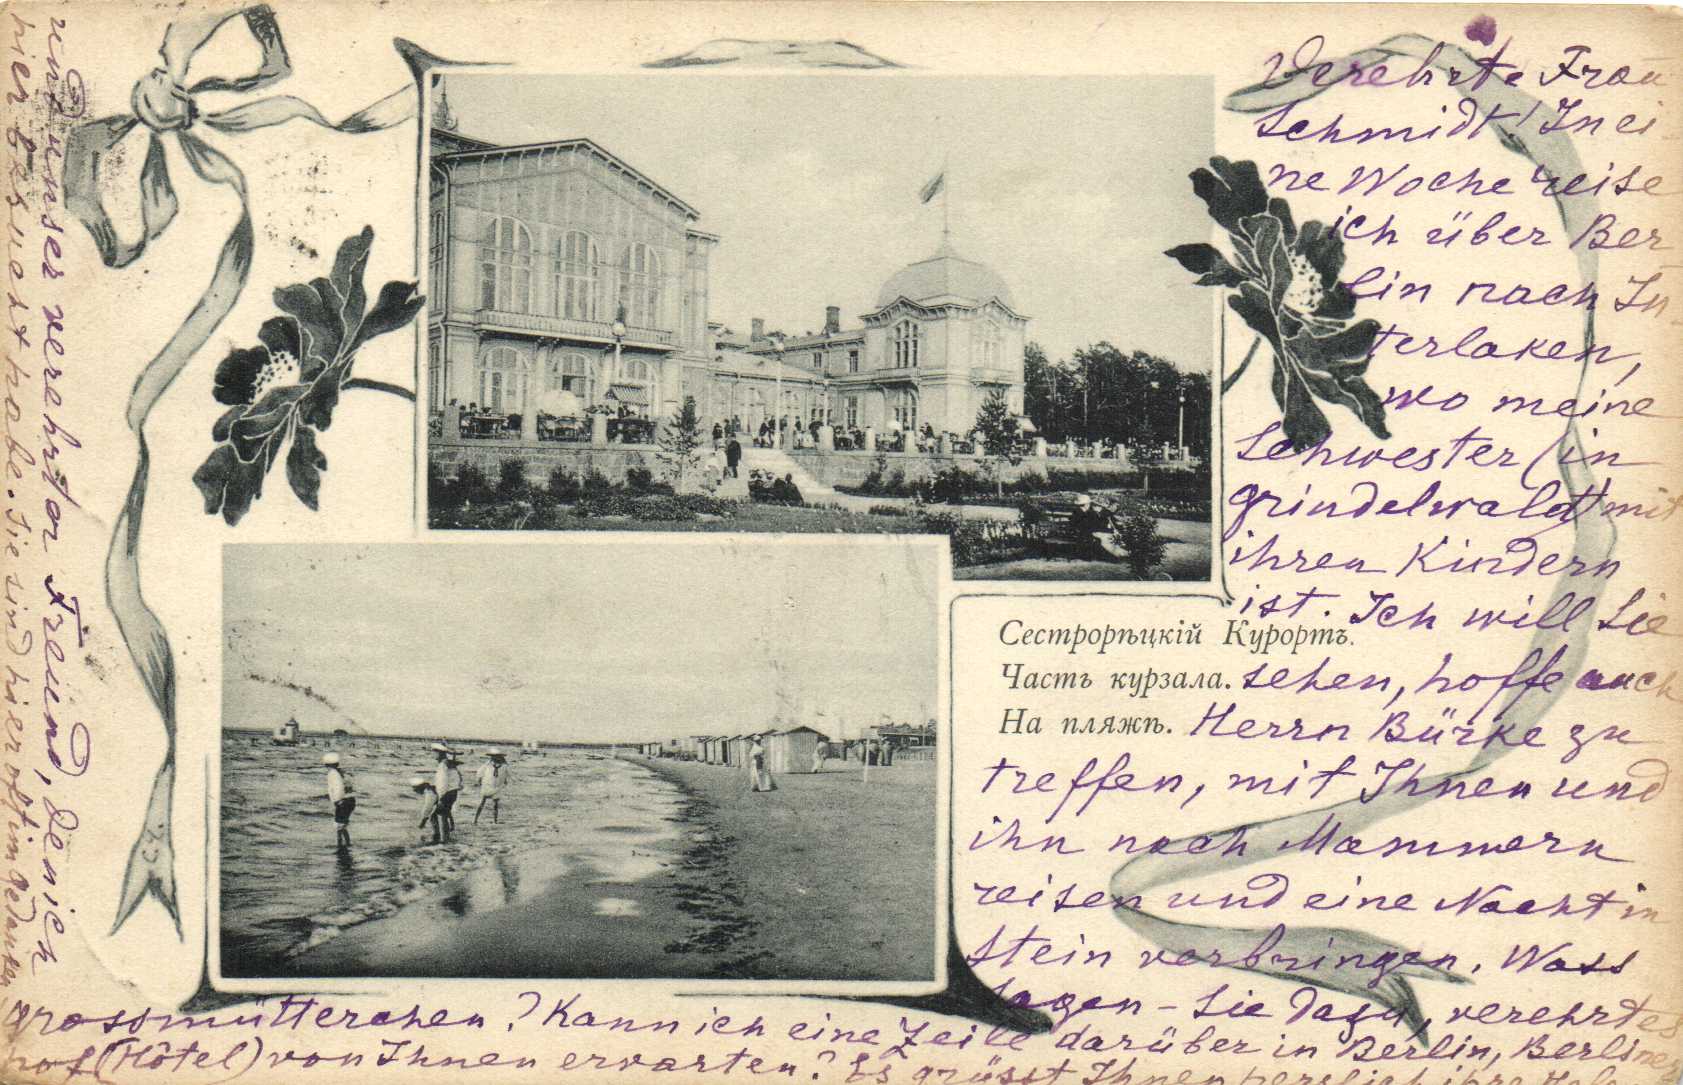 Verehrte Frau
Schmidt! In ei-
ne Woche reise
ich über Ber
lin nach In-
terlaken,
wo meine
Schwester (in
grindelwald) mit
ihren Kindern
ist. Ich will Sie
Сестрорѣцкій Курортъ.
Часть курзала.
На пляжѣ.
sehen, hoffe auch
Herrn Bürke zu
treffen, mit Ihnen und
ihn nach Mammern
reisen und eine Nacht in
Stein verbringen. Wass
sagen - Sie dazu, verehrtes
grossmütterchen? Kann ich eine Zeile darüber in Berlin, Berliner
hof (Hôtel) von Ihnen erwarten? Es grüsst Ihnen herzlich ihre
und unser verehrter Freund, den ich
hier besucht habe. Sie sind hier oft im Gedanken
C.Y.